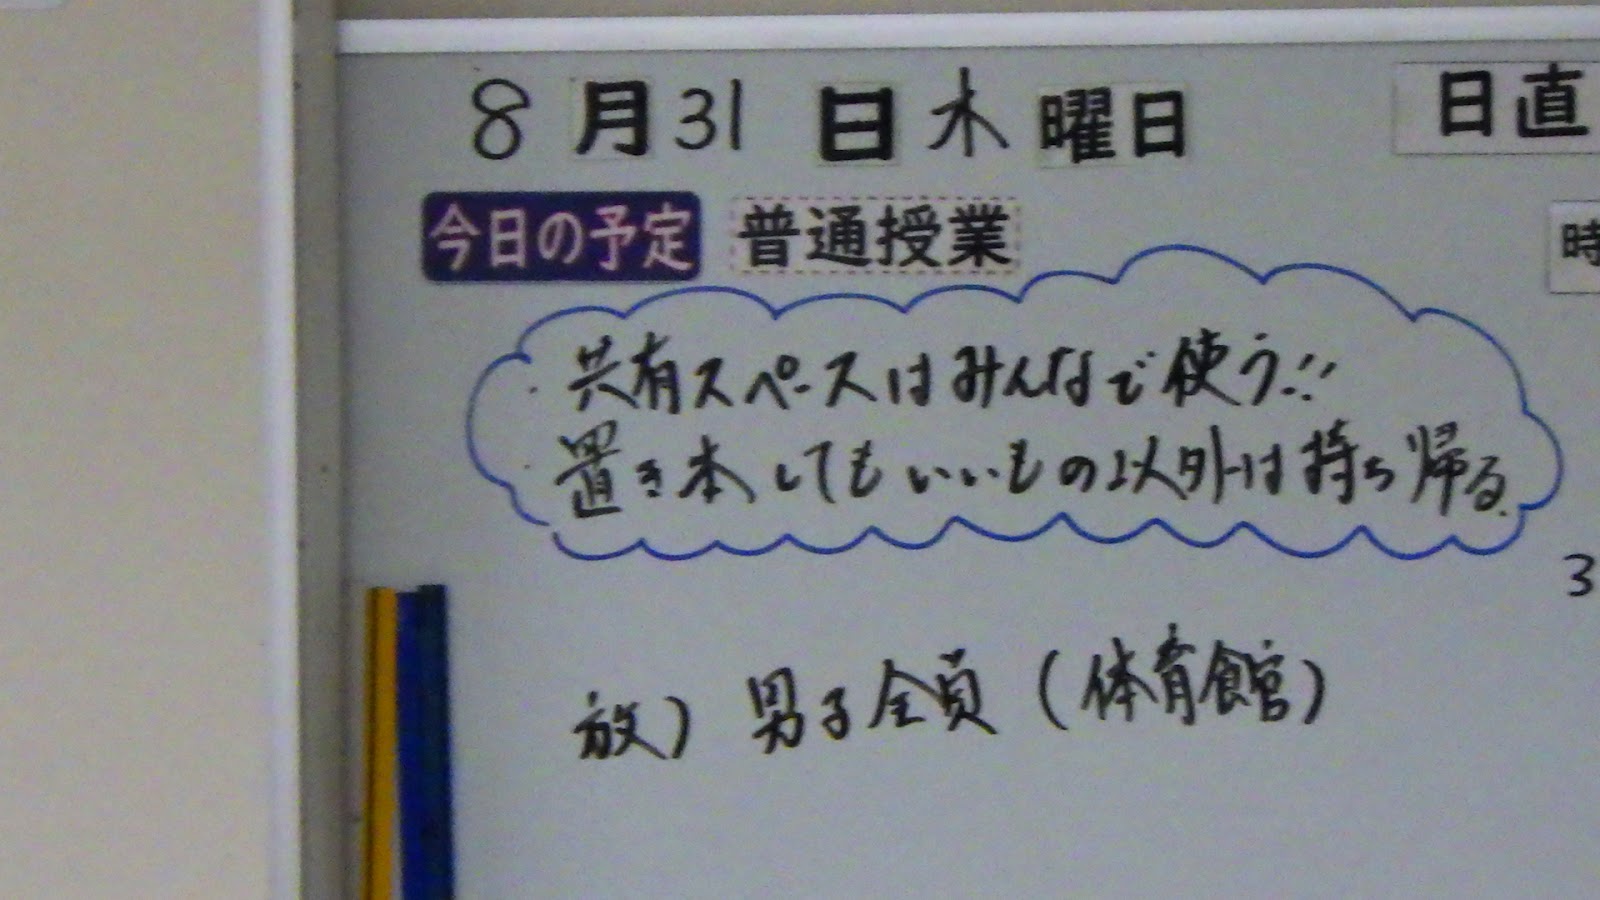 8月31日木曜日 日直
今日の予定 普通授業
時
・共有スペースはみんなで使う!!
・置き本してもいいもの以外は持ち帰る.
3
放) 男子全員 (体育館)